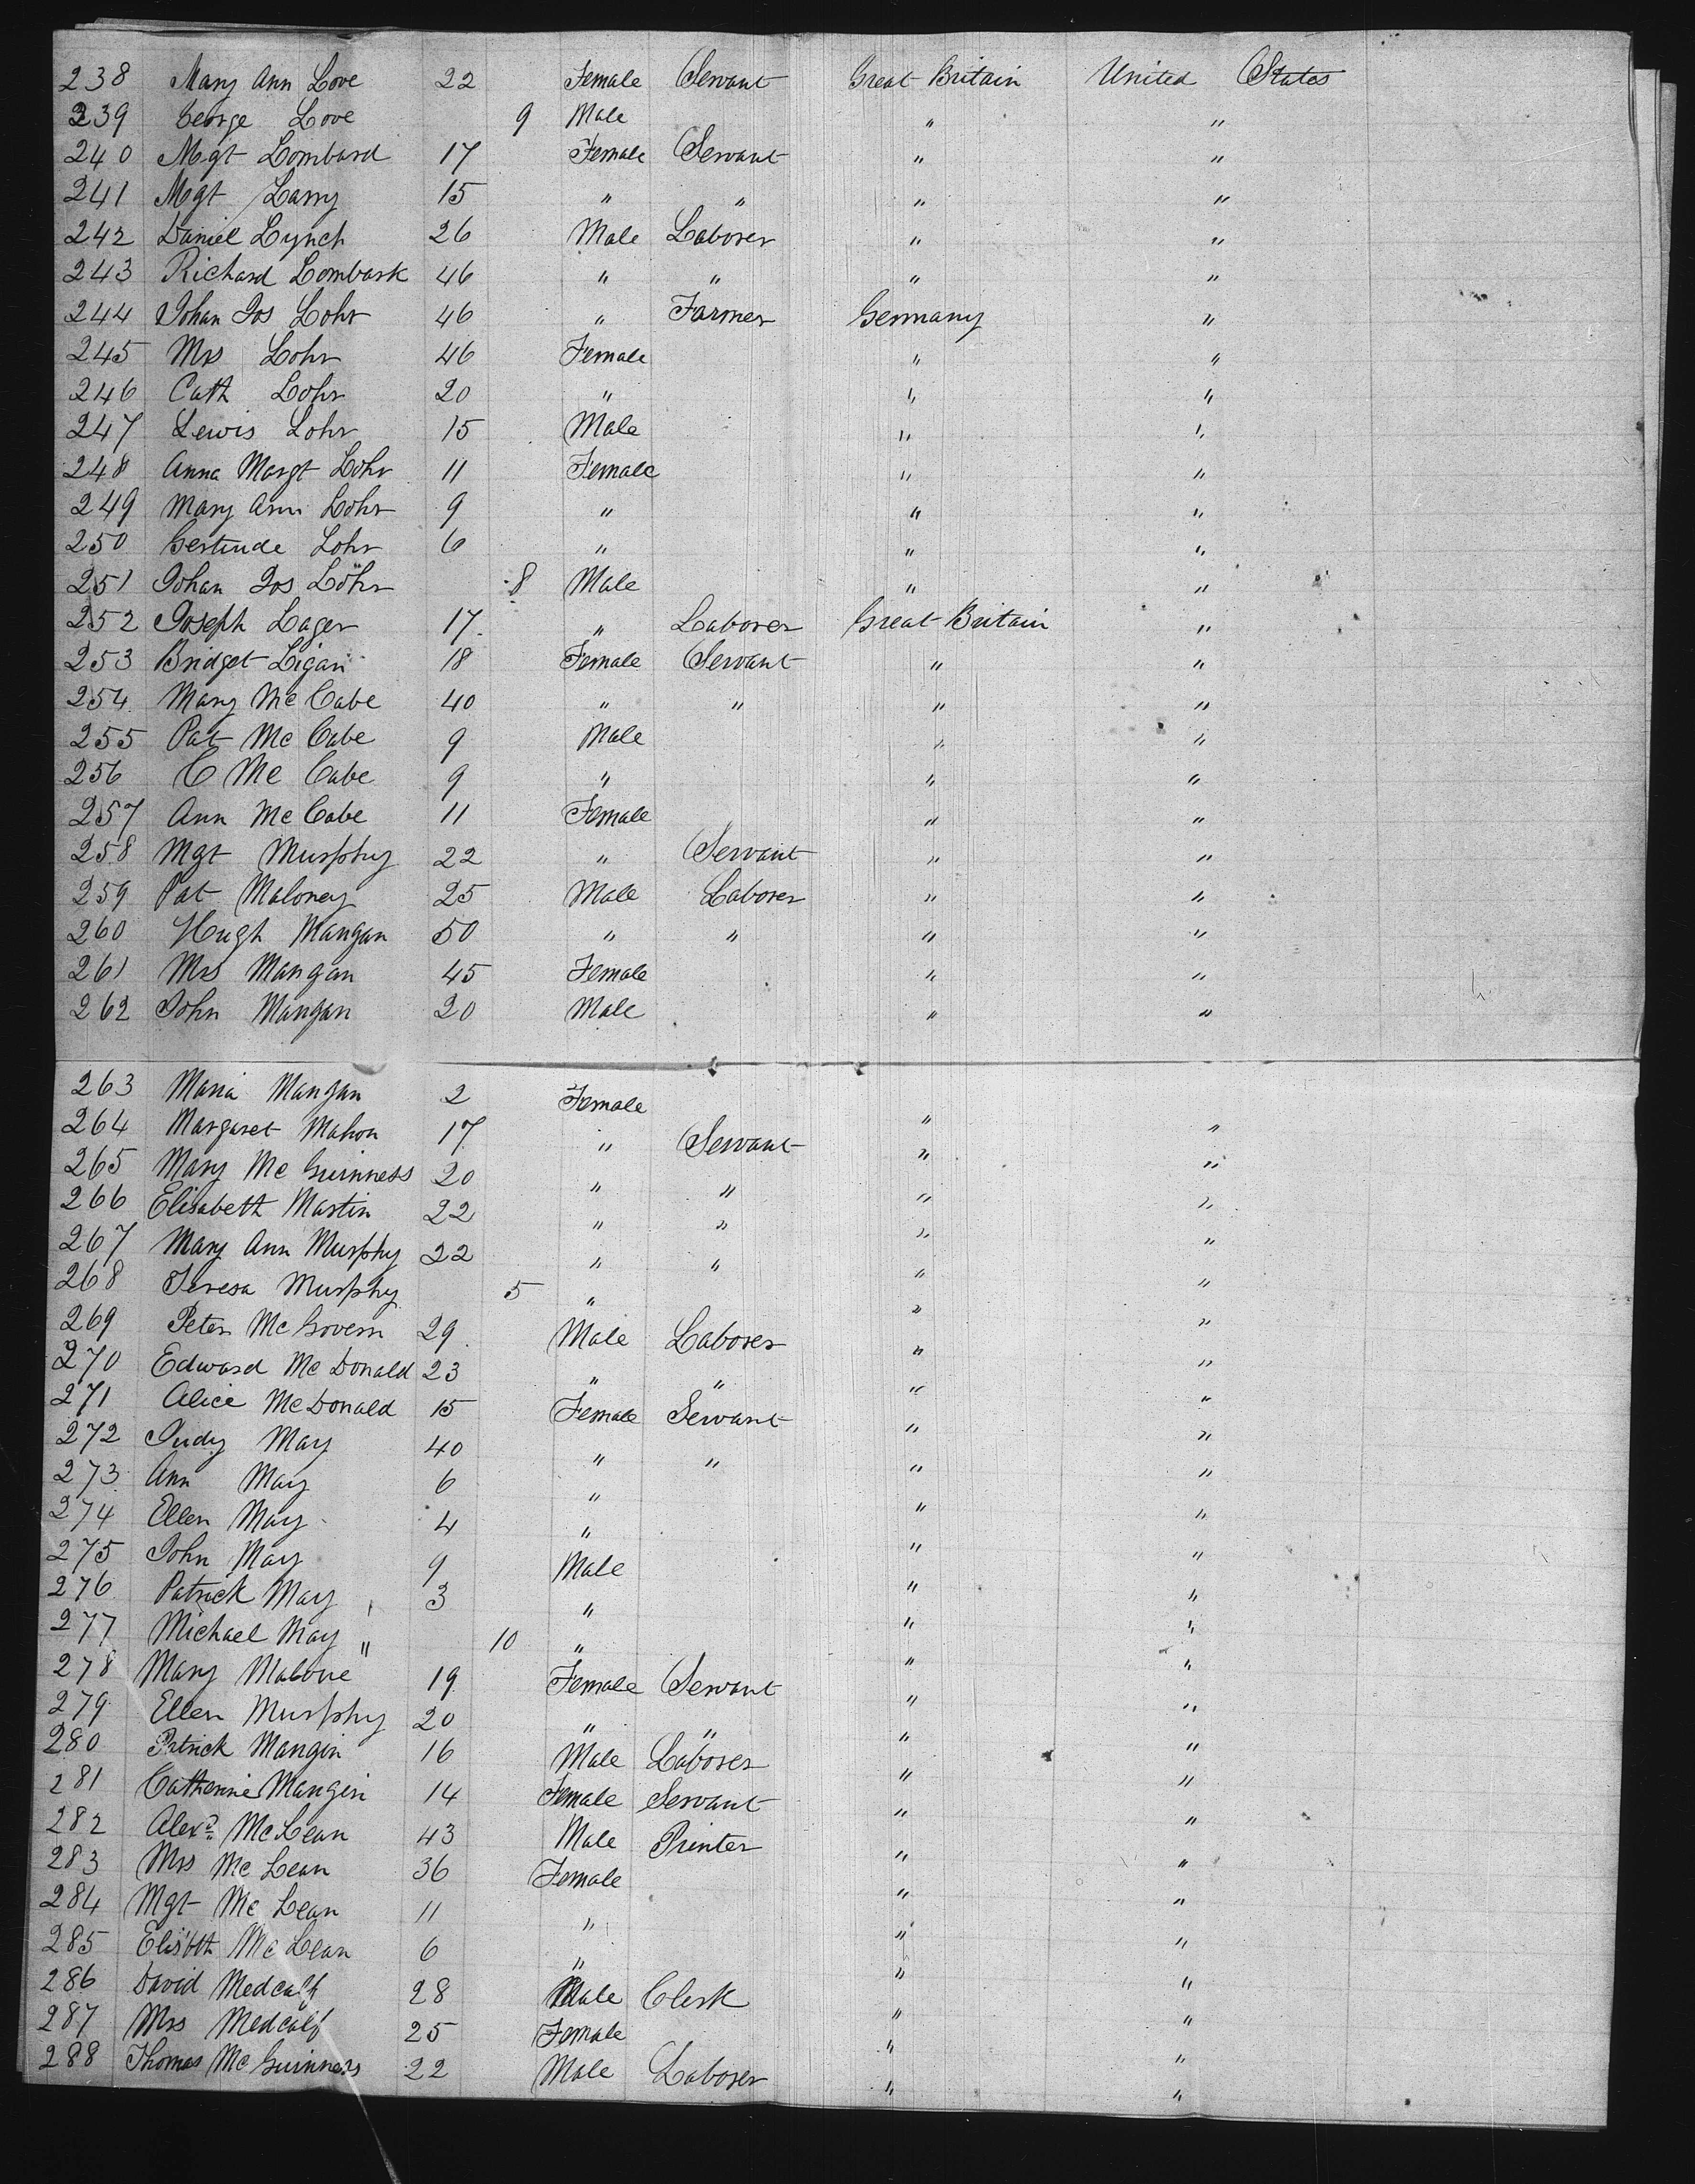 238 Mary Ann Love 22 Female Servant Great Britain United States
239 George Love 9 Male " "
240 Mgt Lombard 17 Female Servant " "
241 Mgt Larry 15 " " " "
242 Daniel Lynch 26 Male Laborer " "
243 Richard Lombark 46 " " " "
244 Johan Jos Lohr 46 " Farmer Germany "
245 Mrs Lohr 46 Female " "
246 Cath Lohr 20 " " "
247 Lewis Lohr 15 Male " "
248 Anna Margt Lohr 11 Female " "
249 Mary Ann Lohr 9 " " "
250 Gertrude Lohr 6 " " "
251 Johan Jos Löhr 8 Male " "
252 Joseph Lager 17 " Laborer Great Britain "
253 Bridget Ligan 18 Female Servant " "
254 Mary McCabe 40 " " " "
255 Pat McCabe 9 Male " "
256 C McCabe 9 " " "
257 Ann McCabe 11 Female " "
258 Mgt Murphy 22 " Servant " "
259 Pat Maloney 25 Male Laborer " "
260 Hugh Mangan 50 " " " "
261 Mrs Mangan 45 Female " "
262 John Mangan 20 Male " "
263 Maria Mangan 2 Female " "
264 Margaret Mahon 17 " Servant " "
265 Mary McGuinness 20 " " " "
266 Elisabeth Martin 22 " " " "
267 Mary Ann Murphy 22 " " " "
268 Teresa Murphy 5 " " "
269 Peter McGovern 29 Male Laborer " "
270 Edward McDonald 23 " " " "
271 Alice McDonald 15 Female Servant " "
272 Judy May 40 " " " "
273 Ann May 6 " " "
274 Ellen May 4 " " "
275 John May 9 Male " "
276 Patrick May 3 " " "
277 Michael May " 10 " " "
278 Mary Malone 19 Female Servant " "
279 Ellen Murphy 20 " " " "
280 Patrick Mangin 16 Male Laborer " "
281 Catherine Mangin 14 Female Servant " "
282 Alexr McLean 43 Male Printer " "
283 Mrs McLean 36 Female " "
284 Mgt McLean 11 " " "
285 Elisbth McLean 6 " " "
286 David Medcalf 28 Male Clerk " "
287 Mrs Medcalf 25 Female " "
288 Thomas McGuinness 22 Male Laborer " "